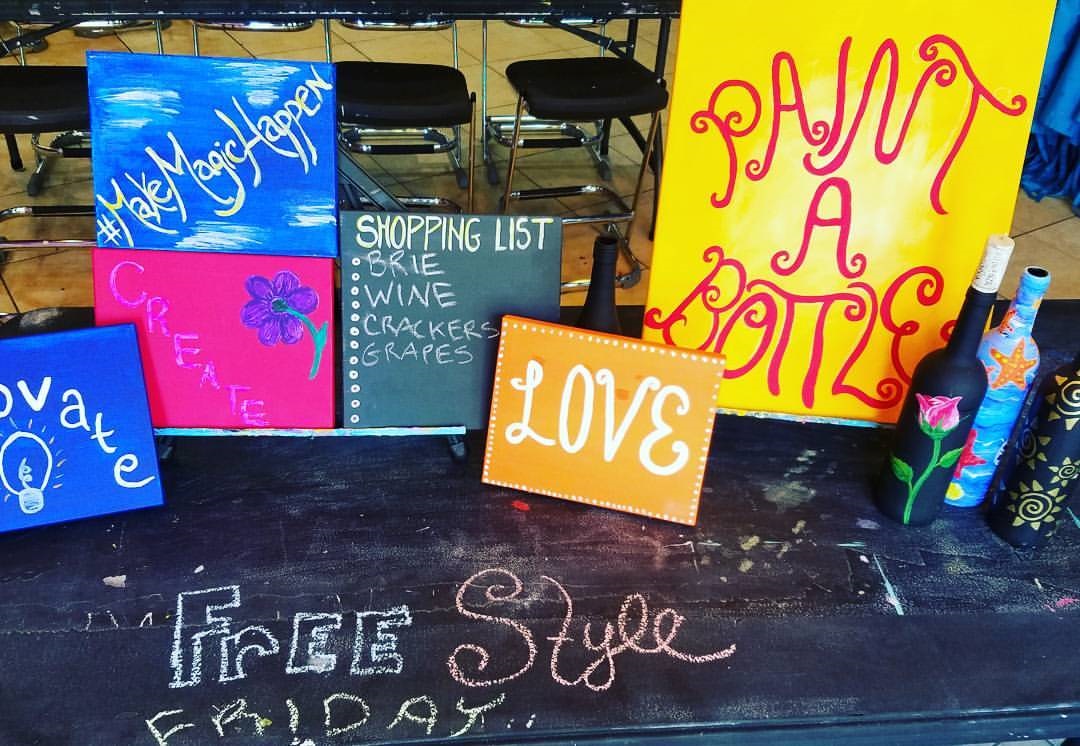 #MakeMagicHappen
CREATE
ovate
SHOPPING LIST
BRIE
WINE
CRACKERS
GRAPES
LOVE
PAINT
A
BOTTLE
FrEE Style
FRiDAY..